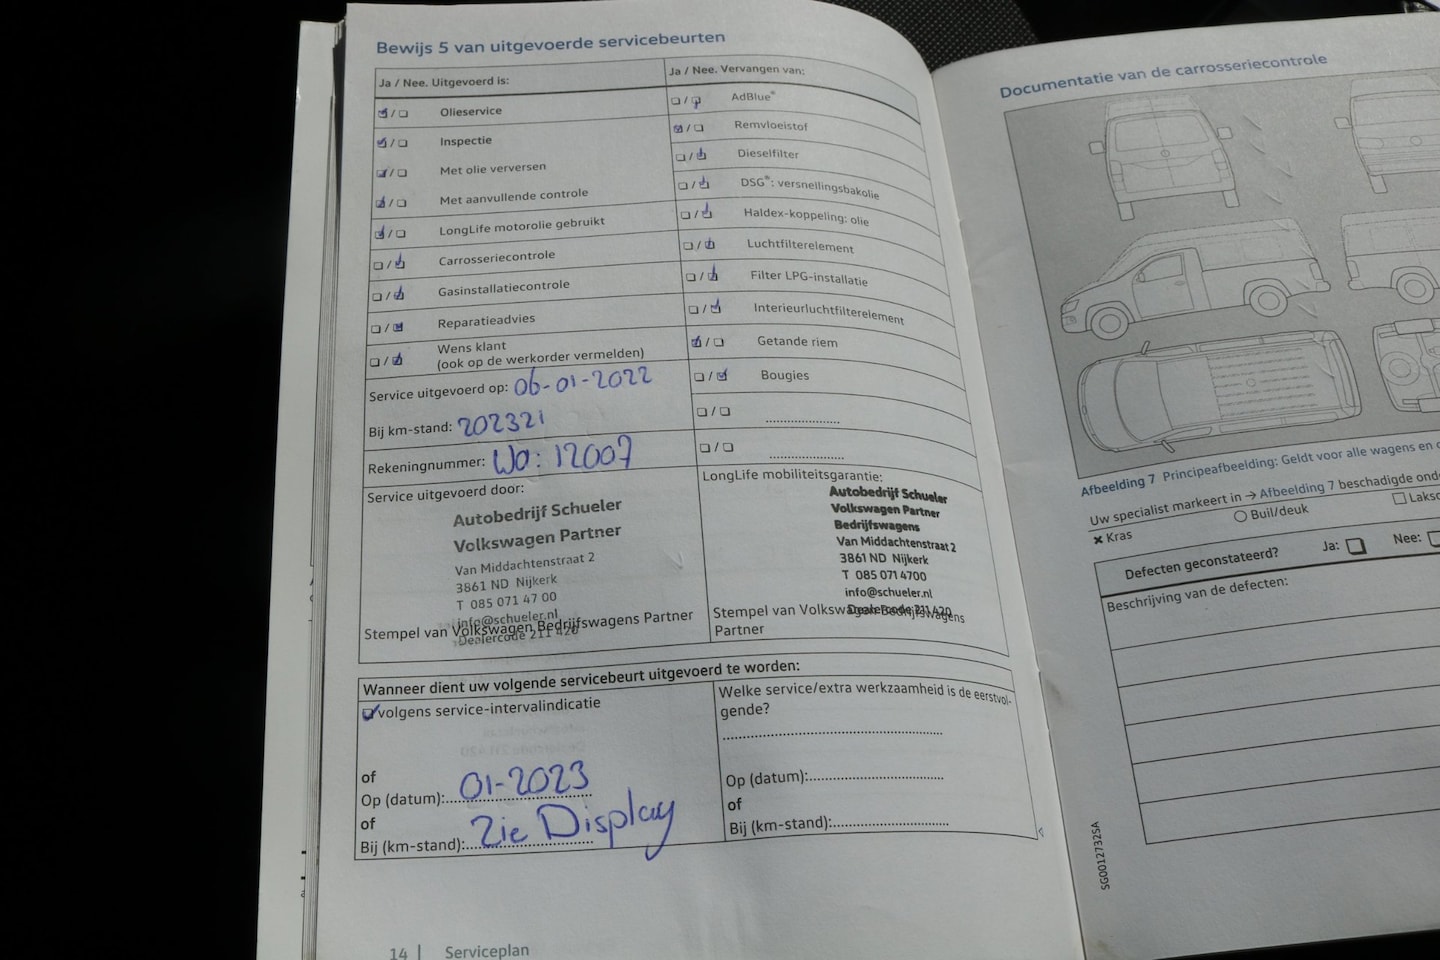 Bewijs 5 van uitgevoerde servicebeurten
Ja / Nee. Uitgevoerd is:
Olieservice
Inspectie
Met olie verversen
Met aanvullende controle
LongLife motorolie gebruikt
Carrosseriecontrole
Gasinstallatiecontrole
Reparatieadvies
Wens klant
(ook op de werkorder vermelden)
Service uitgevoerd op: 06-01-2022
Bij km-stand: 202321
Rekeningnummer: Wo: 12007
Ja / Nee. Vervangen van:
AdBlue®
Remvloeistof
Dieselfilter
DSG®: versnellingsbakolie
Haldex-koppeling: olie
Luchtfilterelement
Filter LPG-installatie
Interieurluchtfilterelement
Getande riem
Bougies
Service uitgevoerd door:
Autobedrijf Schueler
Volkswagen Partner
Van Middachtenstraat 2
3861 ND Nijkerk
T 085 071 47 00
info@schueler.nl
Dealercode 211 420
Stempel van Volkswagen Bedrijfswagens Partner
LongLife mobiliteitsgarantie:
Autobedrijf Schueler
Volkswagen Partner
Bedrijfswagens
Van Middachtenstraat 2
3861 ND Nijkerk
T 085 071 4700
info@schueler.nl
Dealercode 211 420
Stempel van Volkswagen Bedrijfswagens
Partner
Wanneer dient uw volgende servicebeurt uitgevoerd te worden:
volgens service-intervalindicatie
of
Op (datum): 01-2023
of
Bij (km-stand): Zie Display
Welke service/extra werkzaamheid is de eerstvol-
gende?
Op (datum):
of
Bij (km-stand):
14 | Serviceplan
Documentatie van de carrosseriecontrole
Afbeelding 7 Principeafbeelding: Geldt voor alle wagens en
Uw specialist markeert in → Afbeelding 7 beschadigde
× Kras
Buil/deuk
Defecten geconstateerd?
Ja:
Nee:
Beschrijving van de defecten:
SG0012732SA